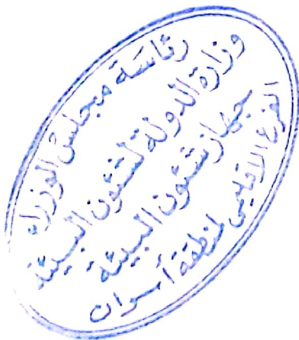 رئاسة مجلس الوزراء
وزارة الدولة لشئون البيئة
جهاز شئون البيئة
الفرع الاقليمى لمنطقة أسوان